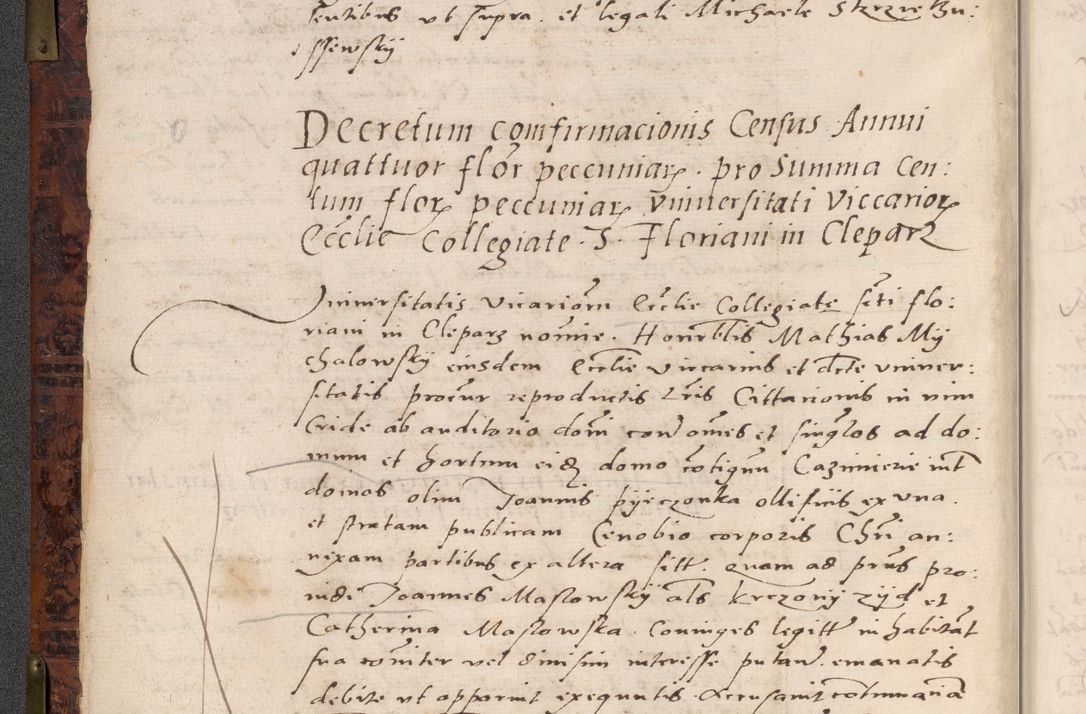 sentibus ut supra. et legali Michaele Skrzetu:
ssewsky
Decretum comfirmacionis Census Annui
quattuor flor peccuniar. pro Summa Cen:
tum flor peccuniar vniuersitati Viccarior
Ecclie Collegiate. S. Floriani in Clepar
Vniuersitatis Vicariorm Ecclie Collegiate scti flo:
riani in Cleparz nomine. Honorblis Mathias My
chalowsky eiusdem Ecclie viccarius et dcte vniuer:
sitatis procur reproductis Lris Cittacionis in vim
Cride ab auditorio domi con omes et singlos ad do:
mum et hortum eid domo cotiguu Cazimierie int
domos olim Joannis pyeczonka ollificis ex vna.
et stratam publicam Cenobio corporis Chri an:
nexam partibus ex altera sitt. quam ad prns pro:
uidi Joannes Maslowsky als krczony zyd et
Catherina Maslowska. Coniuges legitt inhabitat
sua comiter vel diuisim interesse putan. emanatis
debite ut apparuit exequutis. Accusauit cotumaciā